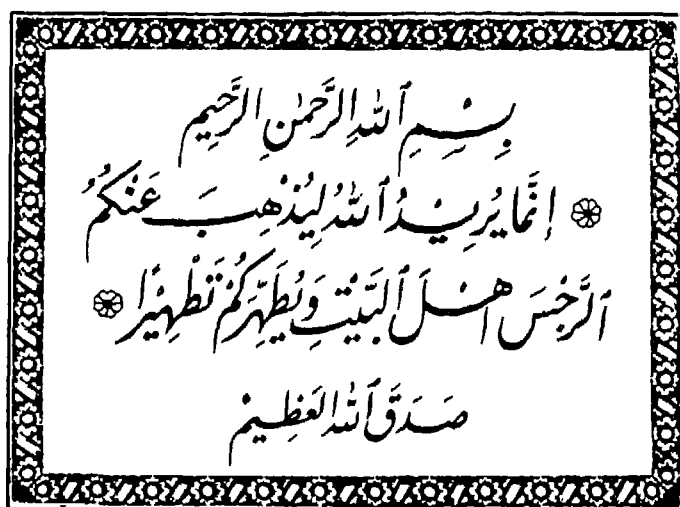 بِسْمِ ٱللهِ الرَّحْمٰنِ الرَّحِيمِ
۞ إِنَّمَا يُرِيدُ ٱللهُ لِيُذْهِبَ عَنْكُمُ
ٱلرِّجْسَ اَهْلَ ٱلْبَيْتِ وَيُطَهِّرَكُمْ تَطْهِيْرًا ۞
صَدَقَ ٱللهُ العَظِيمْ